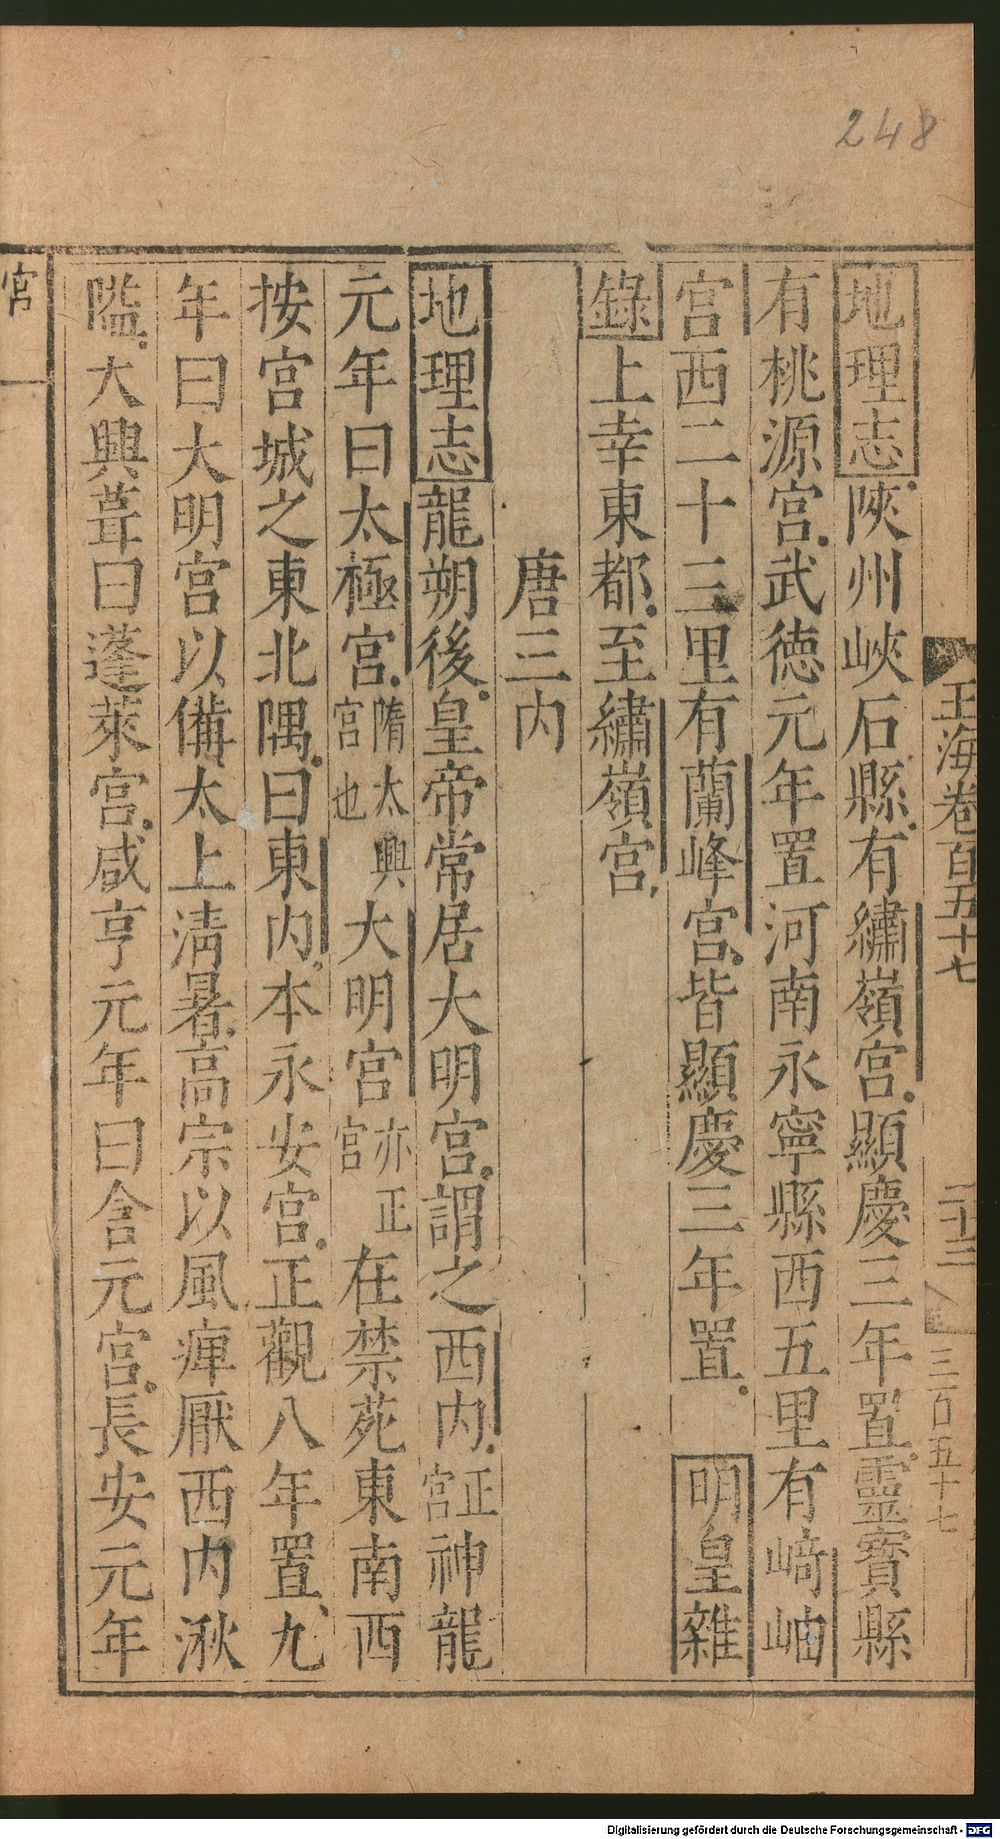 248
玉海卷百五十七
二十三
三百五十七
地理志陜州峽石縣有繡嶺宮顯慶三年置靈寶縣
有桃源宮武德元年置河南永寧縣西五里有崎岫
宮西二十三里有蘭峰宮皆顯慶三年置 明皇雜
錄上幸東都至繡嶺宮
唐三內
地理志龍朔後皇帝常居大明宮謂之西內正宮神龍
元年曰太極宮隋太興宮也大明宮亦正宮在禁苑東南西
按宮城之東北隅曰東內本永安宮正觀八年置九
年曰大明宮以備太上清暑高宗以風痺厭西內湫
隘大興葺曰蓬萊宮咸亨元年曰含元宮長安元年
宮
Digitalisierung gefördert durch die Deutsche Forschungsgemeinschaft - DFG